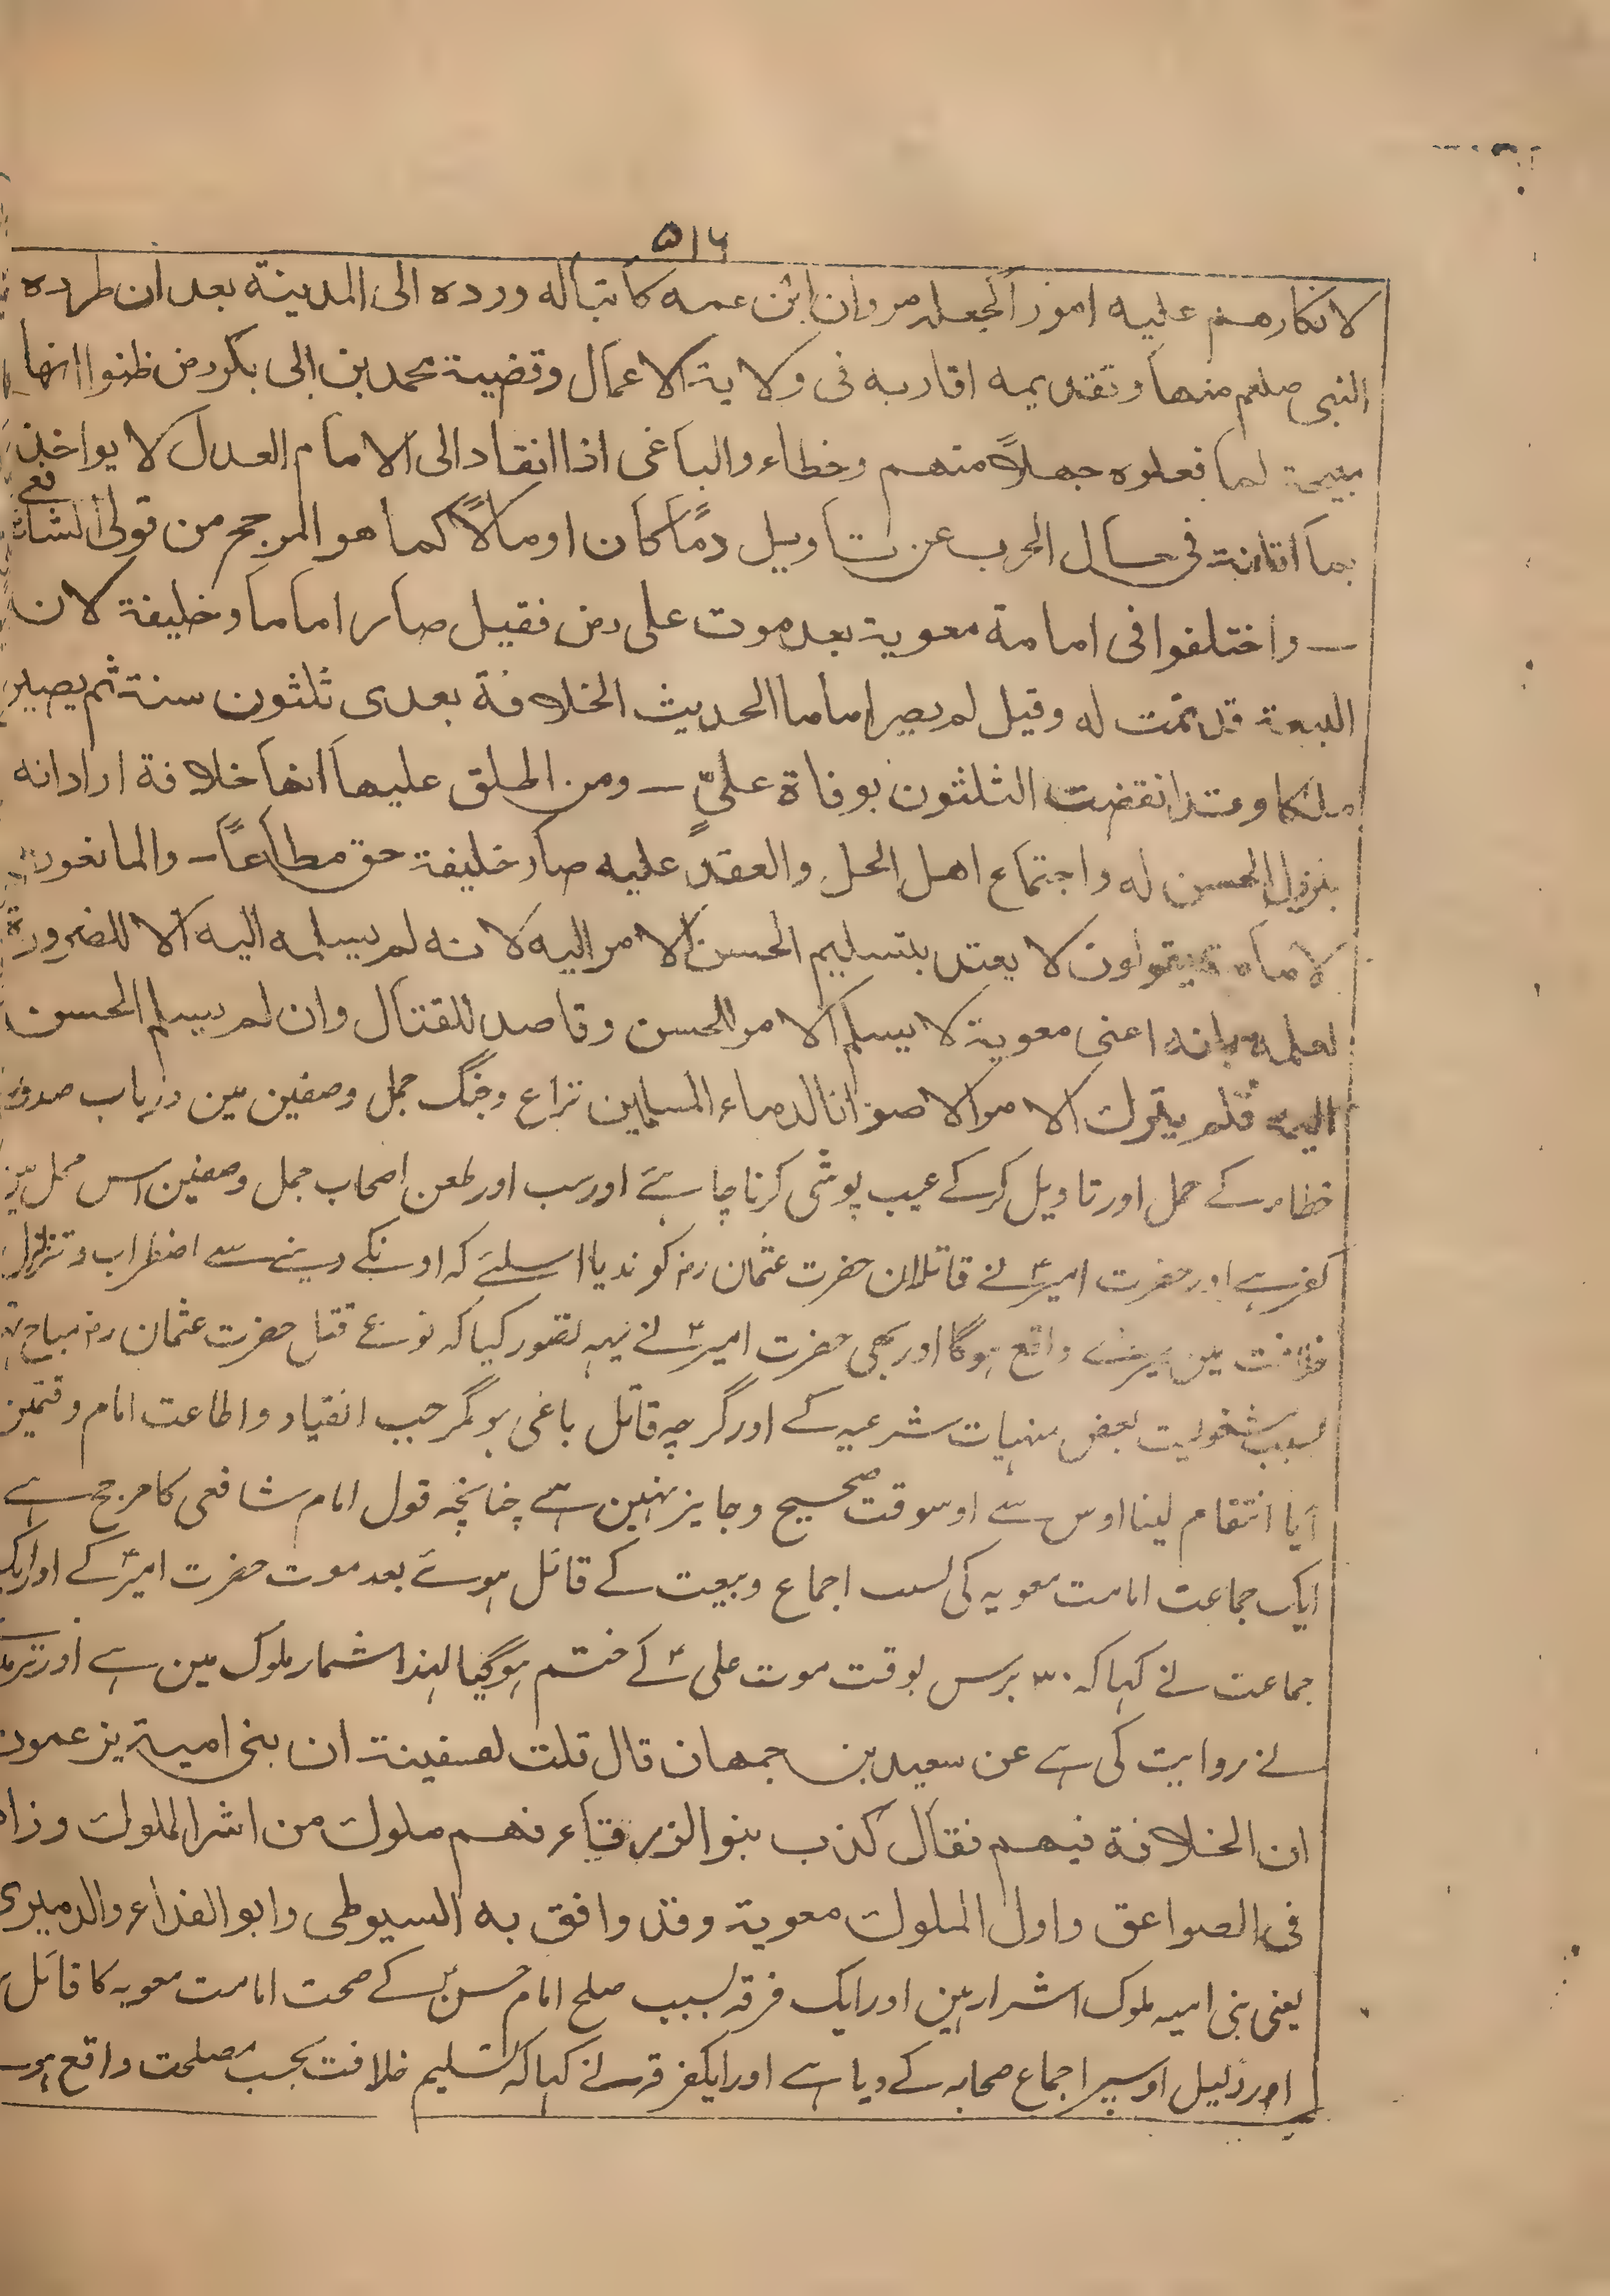 ۵۱۶
لانكارهم عليه امورا كجعله مروان ابن عمه كاتباله ورده الى المدينة بعد ان طرده
النبى صلعم منها وتقديمه اقاربه فى ولاية الاعمال وقضية محمد بن ابى بكر رض ظنوا انها
مبيحة لما فعلوه جهلاً منهم وخطاء والباغى اذا انقاد الى الامام العدل لا يواخذ
بما اتلفه فى حال الحرب عن تاويل دمًا كان او مالًا كما هو المرجح من قولى الشافعى
— واختلفوا فى امامة معوية بعد موت على رض فقيل صار اماما وخليفة لان
البيعة قد تمت له وقيل لم يصر اماما الحديث الخلافة بعدى ثلثون سنة ثم يصير
ملكا وقد انقضت الثلثون بوفاة علىّ — ومن اطلق عليها انها خلافة اراد انه
بنزول الحسن له واجتماع اهل الحل والعقد عليه صار خليفة حق مطاعاً — والمانعون
لامامته يقولون لا يعتد بتسليم الحسن الامر اليه لانه لم يسلمه اليه الا للضرورة
لعلمه بانه اعنى معوية لا يسلم الامر للحسن وقاصد للقتال وان لم يسلم الحسن
اليه فلم يترك الامر الا صونا لدماء المسلمين نزاع وجنگ جمل وصفين مين درباب صدور
خطاء کے حمل اور تاویل کرکے عیب پوشی کرنا چاہئے اور سب اور طعن اصحاب جمل وصفین اس محمل پر
کفر ہے اور حضرت امیرؑ نے قاتلان حضرت عثمان رض کو ندیا اسلئے کہ اونکے دینے سے اضطراب و تزلزل
خلافت مین میرے واقع ہوگا اور بھی حضرت امیرؑ نے یہہ تصور کیا کہ نوعے قتل حضرت عثمان رض مباح
بسبب مشغولیت بعض منہیات شرعیہ کے اور گرچہ قاتل باغی ہو مگر جب انقیاد و اطاعت امام وقتمین
آیا انتقام لینا اوس سے اوسوقت صحیح وجایز نہین ہے چنانچہ قول امام شافعی کا مرجح ہے
ایک جماعت امامت معویہ کی بسبب اجماع وبیعت کے قائل ہوئے بعد موت حضرت امیرؑ کے اور ایک
جماعت نے کہا کہ ۳۰ برس بوقت موت علیؑ کے ختم ہوگیا لہذا شمار ملوک مین ہے اور ترمذی
نے روایت کی ہے عن سعيد بن جمهان قال قلت لسفينة ان بنى امية يزعمون
ان الخلافة فيهم فقال كذب بنو الزرقاء فهم ملوك من اشر الملوك وزاد
فى الصواعق واول الملوك معوية وقد وافق به السيوطى وابو الفداء والدميرى
یعنی بنی امیہ ملوک اشرار ہین اور ایک فرقہ بسبب صلح امام حسنؑ کے صحت امامت معویہ کا قائل
اور دلیل اوسپر اجماع صحابہ کے دیا ہے اور ایکفرقہ نے کہا کہ تسلیم خلافت بحسب مصلحت واقع ہوے